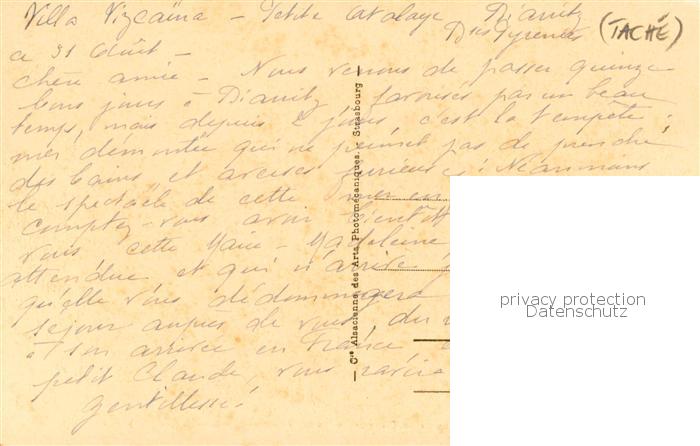 Villa Vizcaïna - Petite Atalaye Biarritz
Bses Pyrénées (TACHÉ)
ce 31 Août -
chère amie - Nous venons de passer quinze
bons jours à Biarritz favorisés par un beau
temps, mais depuis 2 jours c'est la tempête :
mer démontée qui ne permet pas de prendre
des bains et averses furieuses ! Néanmoins
le spectacle de cette mer en
comptez-vous avoir bientôt
vous cette Marie-Magdeleine
attendue et qui n'arrive
qu'elle vous dédommagera
séjour auprès de vous, du
à son arrivée en France
petit Claude, vous ravira
gentillesse !
— Cie Alsacienne des Arts Photomécaniques, Strasbourg —
privacy protection
Datenschutz